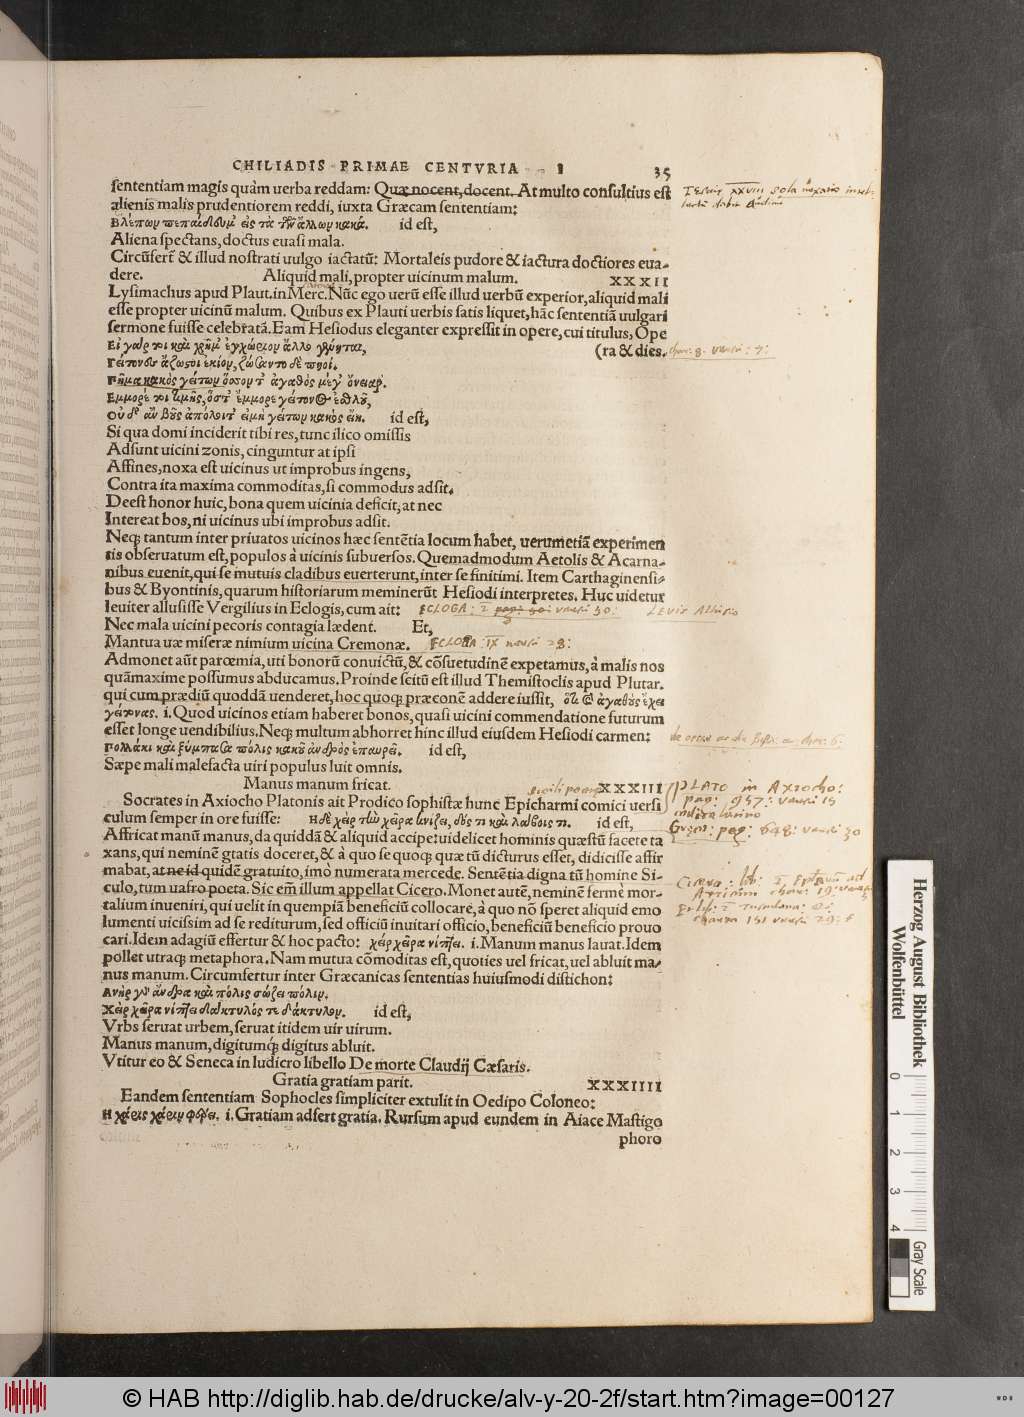 CHILIADIS PRIMAE CENTVRIA I 35
sententiam magis quàm uerba reddam: Quæ nocent, docent. At multo consultius est
alienis malis prudentiorem reddi, iuxta Græcam sententiam:
Βλέπων πεπαίδευμ' εἰς τὰ τῶν ἄλλων κακά. id est,
Aliena spectans, doctus euasi mala.
Circũfert̃ & illud nostrati uulgo iactatũ: Mortaleis pudore & iactura doctiores eua-
dere. Aliquid mali, propter uicinum malum. XXXII
Lysimachus apud Plaut. in Merc. Nũc ego uerũ esse illud uerbũ experior, aliquid mali
esse propter uicinũ malum. Quibus ex Plauti uerbis satis liquet, hãc sententiã uulgari
sermone fuisse celebratã. Eam Hesiodus eleganter expressit in opere, cui titulus, Ope
(ra & dies.
Εἰ γάρ τοι καὶ χρῆμ' ἐγχώριον ἄλλο γένηται,
Γείτονες ἄζωστοι ἔκιον, ζώσαντο δὲ πηοί.
Πῆμα κακὸς γείτων ὅσσον τ' ἀγαθὸς μέγ' ὄνειαρ.
Εμμορέ τοι τιμῆς, ὅς τ' ἔμμορε γείτονος ἐσθλοῦ,
Οὐ δ' ἂν βοῦς ἀπόλοιτ' εἰ μὴ γείτων κακὸς εἴη. id est,
Si qua domi inciderit tibi res, tunc ilico omissis
Adsunt uicini zonis, cinguntur at ipsi
Affines, noxa est uicinus ut improbus ingens,
Contra ita maxima commoditas, si commodus adsit.
Deest honor huic, bona quem uicinia deficit, at nec
Intereat bos, ni uicinus ubi improbus adsit.
Neq; tantum inter priuatos uicinos hæc sentẽtia locum habet, uerumetiã experimen
tis obseruatum est, populos à uicinis subuersos. Quemadmodum Aetolis & Acarna-
nibus euenit, qui se mutuis cladibus euerterunt, inter se finitimi. Item Carthaginensi-
bus & Byontinis, quarum historiarum meminerũt Hesiodi interpretes. Huc uidetur
leuiter allusisse Vergilius in Eclogis, cum ait:
Nec mala uicini pecoris contagia lædent. Et,
Mantua uæ miseræ nimium uicina Cremonæ.
Admonet aũt parœmia, uti bonorũ conuictũ, & cõsuetudinẽ expetamus, à malis nos
quãmaxime possumus abducamus. Proinde scitũ est illud Themistoclis apud Plutar.
qui cum prædiũ quoddã uenderet, hoc quoq; præconẽ addere iussit, ὅτι καὶ ἀγαθοὺς ἔχει
γείτονας. i. Quod uicinos etiam haberet bonos, quasi uicini commendatione futurum
esset longe uendibilius. Neq; multum abhorret hinc illud eiusdem Hesiodi carmen:
Πολλάκι καὶ ξύμπασα πόλις κακοῦ ἀνδρὸς ἐπαυρεῖ. id est,
Sæpe mali malefacta uiri populus luit omnis.
Manus manum fricat. XXXIII
Socrates in Axiocho Platonis ait Prodico sophistæ hunc Epicharmi comici uersi
culum semper in ore fuisse: Η δὲ χεὶρ τὴν χεῖρα κνίζει, δός τι καὶ λάβοις τι. id est,
Affricat manũ manus, da quiddã & aliquid accipe: uidelicet hominis quæstũ facete ta
xans, qui neminẽ gratis doceret, & à quo se quoq; quæ tũ dicturus esset, didicisse affir
mabat, at ne id quidẽ gratuito, imò numerata mercede. Sentẽtia digna tũ homine Si-
culo, tum uafro poeta. Sic em̃ illum appellat Cicero. Monet autẽ, neminẽ fermè mor-
talium inueniri, qui uelit in quempiã beneficiũ collocare, à quo nõ speret aliquid emo
lumenti uicissim ad se rediturum, sed officiũ inuitari officio, beneficiũ beneficio prouo
cari. Idem adagiũ effertur & hoc pacto: χεὶρ χεῖρα νίπτει. i. Manum manus lauat. Idem
pollet utraq; metaphora. Nam mutua cõmoditas est, quoties uel fricat, uel abluit ma-
nus manum. Circumfertur inter Græcanicas sententias huiusmodi distichon:
Ανὴρ γὰρ ἄνδρα καὶ πόλις σώζει πόλιν.
Χεὶρ χεῖρα νίπτει δάκτυλός τε δάκτυλον. id est,
Vrbs seruat urbem, seruat itidem uir uirum.
Manus manum, digitumq́; digitus abluit.
Vtitur eo & Seneca in ludicro libello De morte Claudij Cæsaris.
Gratia gratiam parit. XXXIIII
Eandem sententiam Sophocles simpliciter extulit in Oedipo Coloneo:
Η χάρις χάριν φέρει. i. Gratiam adfert gratia. Rursum apud eundem in Aiace Mastigo
phoro
ECLOGA : IX
PLATO in AXIOCHO:
pag: 957:
pag: 648:
Herzog August Bibliothek
Wolfenbüttel
0 1 2 3 4
Gray Scale
© HAB http://diglib.hab.de/drucke/alv-y-20-2f/start.htm?image=00127